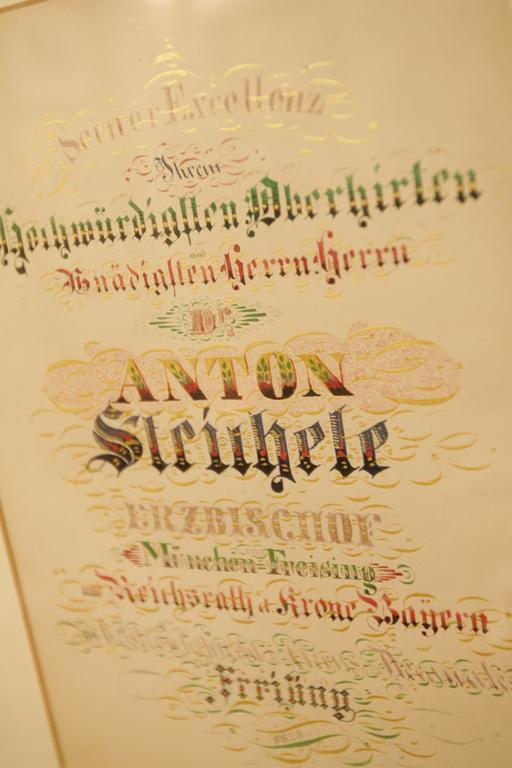 Seiner Excellenz
Ihrem
Hochwürdigsten Oberhirten
und
Gnädigsten Herrn Herrn
Dr.
ANTON
Steichele
ERZBISCHOF
München-Freising
und Reichsrath d. Krone Bayern
Freisung